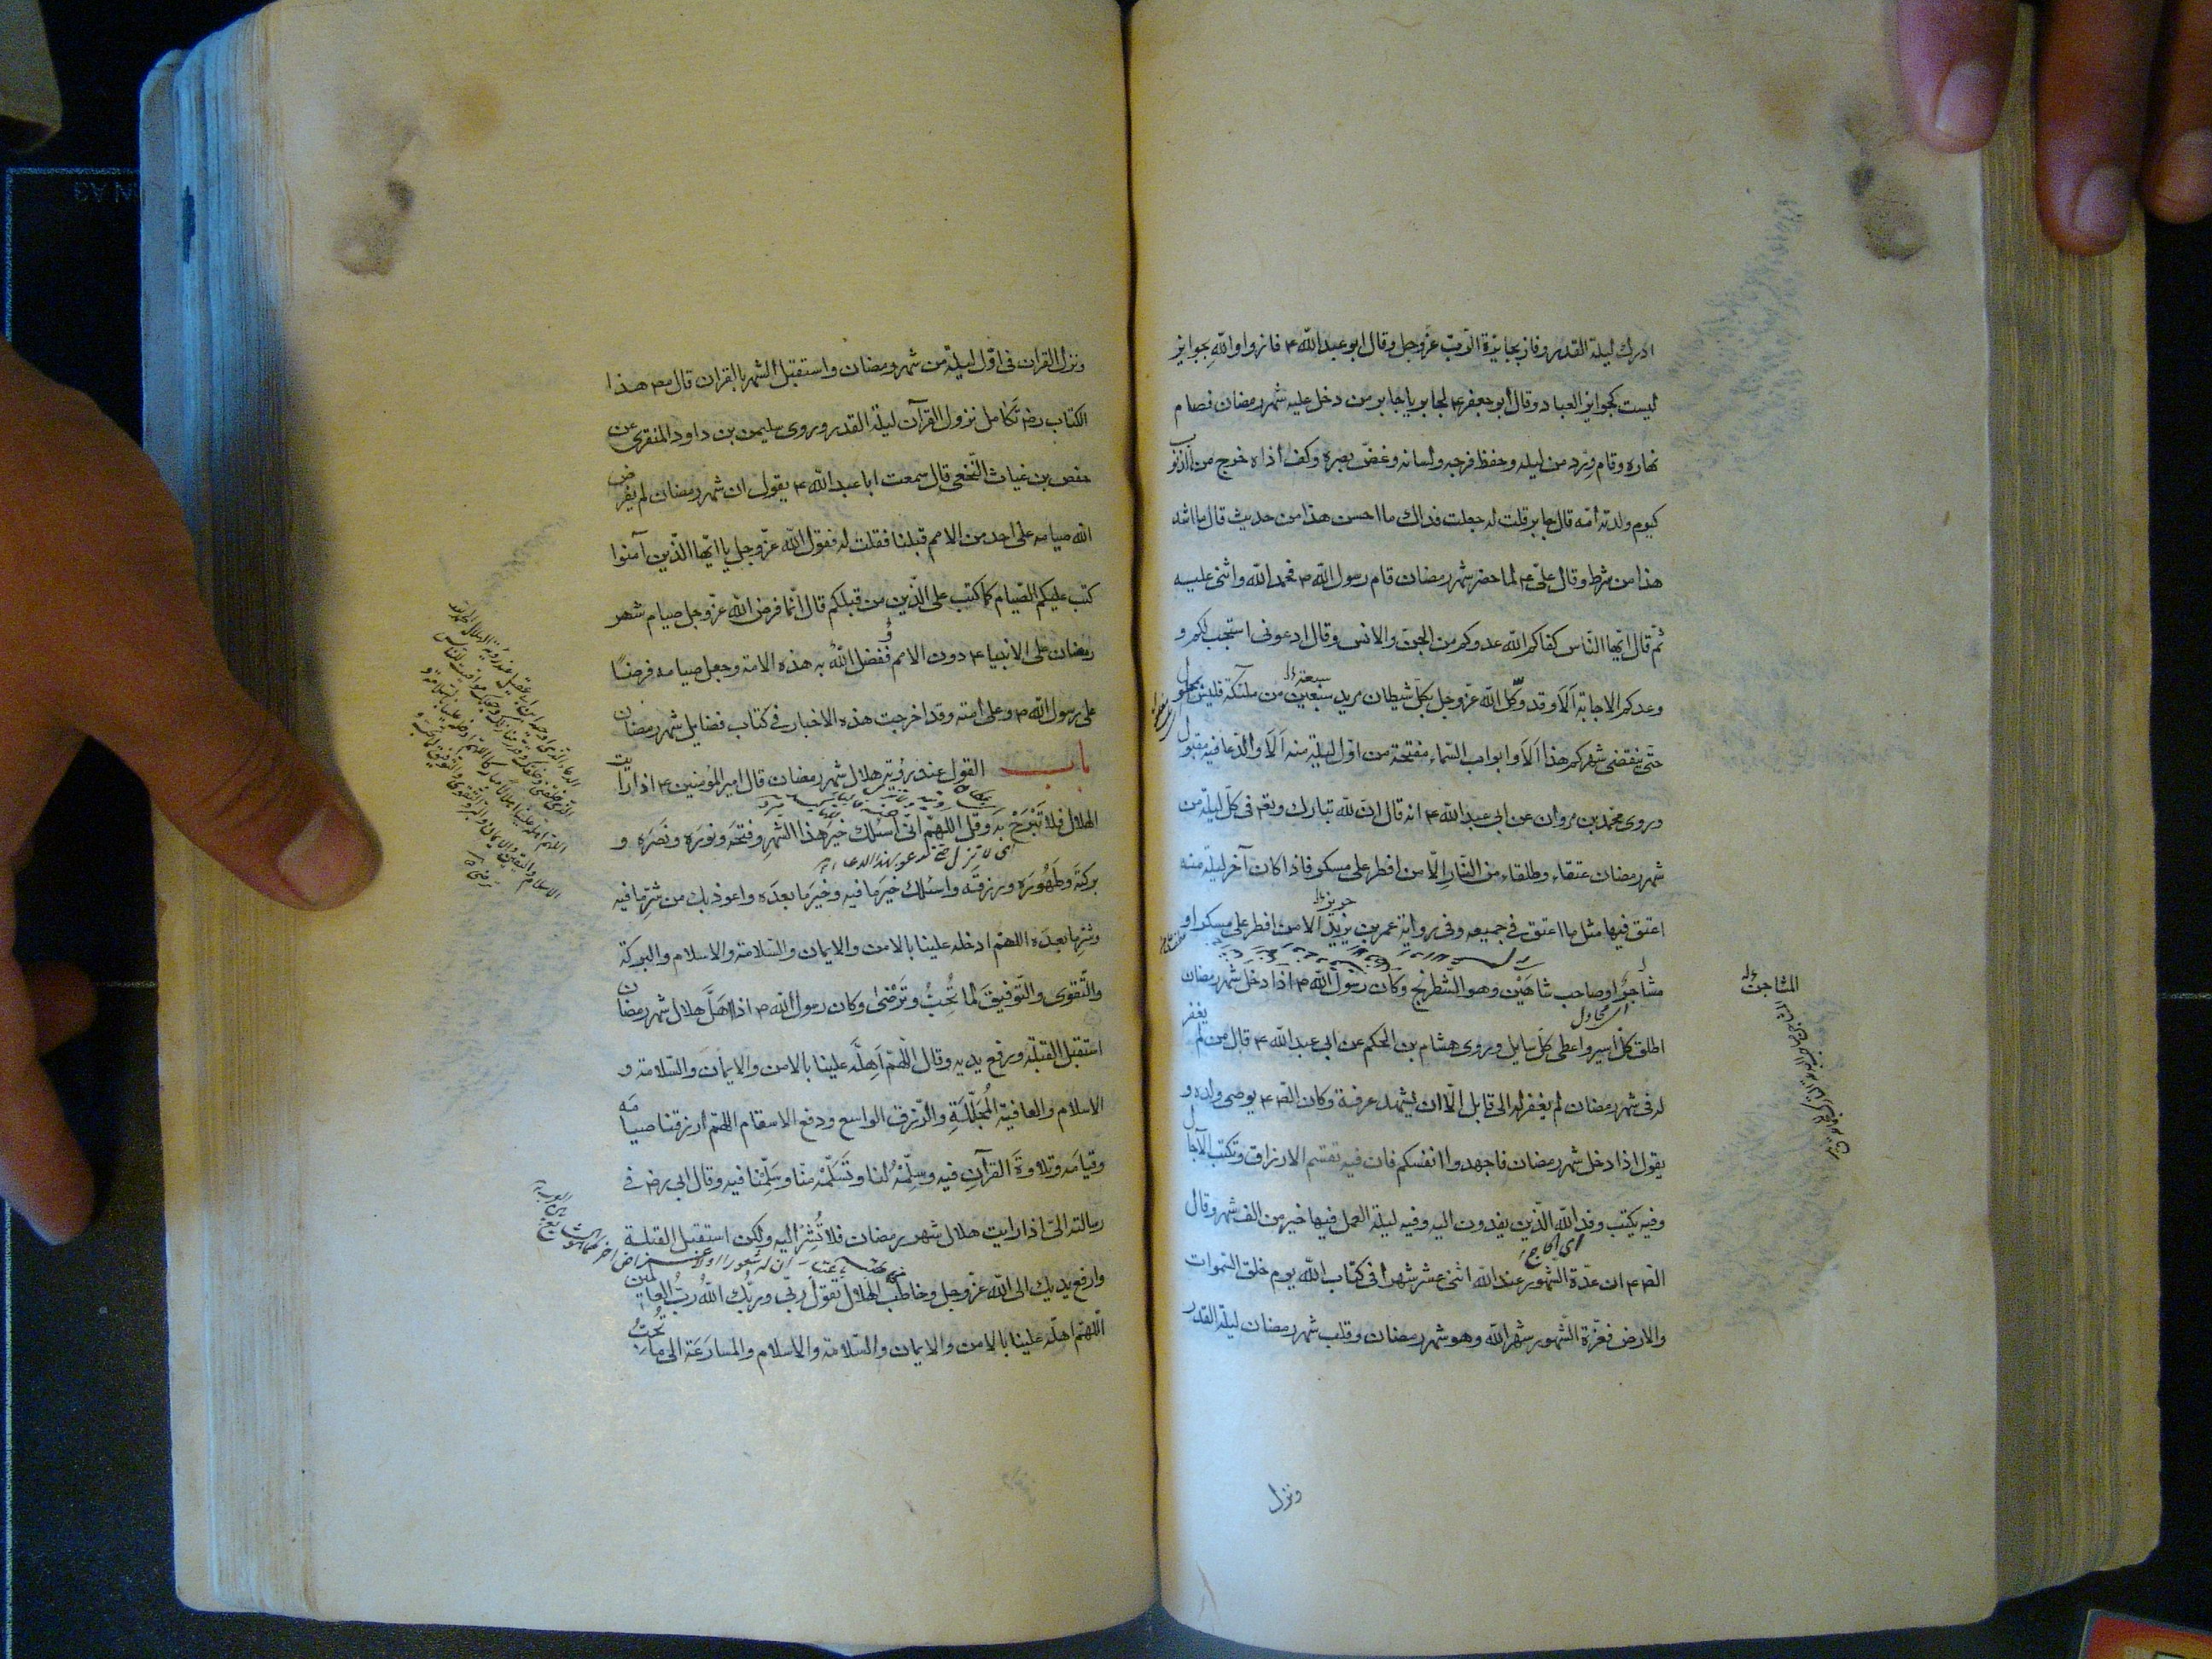 ادرك ليلة القدر وفاز بجايزة الرب عزوجل وقال ابو عبد الله ع فازوا والله بجوايز
ليست كجوايز العباد وقال ابو جعفر ع لجابر يا جابر من دخل عليه شهر رمضان فصام
نهاره وقام ورد من ليله وحفظ فرجه ولسانه وغض بصره وكف اذاه خرج من الذنوب
كيوم ولدته امه قال جابر قلت له جعلت فداك ما احسن هذا من حديث قال ما اشد
هذا من شرط وقال علي ع لما حضر شهر رمضان قام رسول الله ص فحمد الله واثنى عليه
ثم قال ايها الناس كفاكم الله عدوكم من الجن والانس وقال ادعوني استجب لكم و
سبعة
وعدكم الاجابة الا وقد وكل الله عزوجل بكل شيطان مريد سبعين من ملئكته فليس بمحلول
حتى ينقضي شهركم هذا الا وابواب السماء مفتحة من اول ليلة منه الا والدعا فيه مقبول
وروى محمد بن مروان عن ابي عبد الله ع انه قال ان لله تبارك وتع في كل ليلة من
شهر رمضان عتقاء وطلقاء من النار الا من افطر على مسكر فاذا كان آخر ليلة منه
اعتق فيها مثل ما اعتق في جميعه وفي رواية عمر بن يزيد الا من افطر على مسكر او
مشاجن او صاحب شاهين وهو الشطرنج وكان رسول الله ص اذا دخل شهر رمضان
المشاجن
اطلق كل اسير واعطى كل سايل وروى هشام بن الحكم عن ابي عبد الله ع قال من لم يغفر
له في شهر رمضان لم يغفر له الى قابل الا ان يشهد عرفة وكان الص ع يوصي ولده و
يقول اذا دخل شهر رمضان فاجهدوا انفسكم فان فيه تقسم الارزاق وتكتب الآجال
وفيه يكتب وفد الله الذين يفدون اليه وفيه ليلة العمل فيها خير من الف شهر وقال
اي الحاج
الص ع ان عدة الشهور عند الله اثنى عشر شهرا في كتاب الله يوم خلق السموات
والارض فغرة الشهور شهر الله وهو شهر رمضان وقلب شهر رمضان ليلة القدر
ونزل
ونزل القران في اول ليلة من شهر رمضان واستقبل الشهر بالقران قال مص هذا
الكتاب رض تكامل نزول القرآن ليلة القدر وروى سليمن بن داود المنقري عن
حفص بن غياث النخعي قال سمعت ابا عبد الله ع يقول ان شهر رمضان لم يفرض
الله صيامه على احد من الامم قبلنا فقلت له فقول الله عزوجل يا ايها الذين آمنوا
كتب عليكم الصيام كما كتب على الذين من قبلكم قال انما فرض الله عزوجل صيام شهر
رمضان على الانبياء ع دون الامم ففضل الله به هذه الامة وجعل صيامه فرضا
على رسول الله ص وعلى امته وقد اخرجت هذه الاخبار في كتاب فضايل شهر رمضان
باب القول عند رؤية هلال شهر رمضان قال امير المؤمنين ع اذا رايت
الهلال فلا تبرح بد وقل اللهم اني اسئلك خير هذا الشهر وفتحه ونوره ونصره و
بركته وطهوره ورزقه واسئلك خير ما فيه وخير ما بعده واعوذ بك من شر ما فيه
وشر ما بعده اللهم ادخله علينا بالامن والايمان والسلامة والاسلام والبركة
والتقوى والتوفيق لما تحب وترضى وكان رسول الله ص اذا اهل هلال شهر رمضان
استقبل القبلة ورفع يديه وقال اللهم اهله علينا بالامن والايمان والسلامة و
الاسلام والعافية المجللة والرزق الواسع ودفع الاسقام اللهم ارزقنا صيامه
وقيامه وتلاوة القرآن فيه وسلمه لنا وتسلمه منا وسلمنا فيه وقال ابي رض في
رسالته الي اذا رايت هلال شهر رمضان فلا تشر اليه ولكن استقبل القبلة
وارفع يديك الى الله عزوجل وخاطب الهلال تقول ربي وربك الله رب العالمين
اللهم اهله علينا بالامن والايمان والسلامة والاسلام والمسارعة الى ما تحب